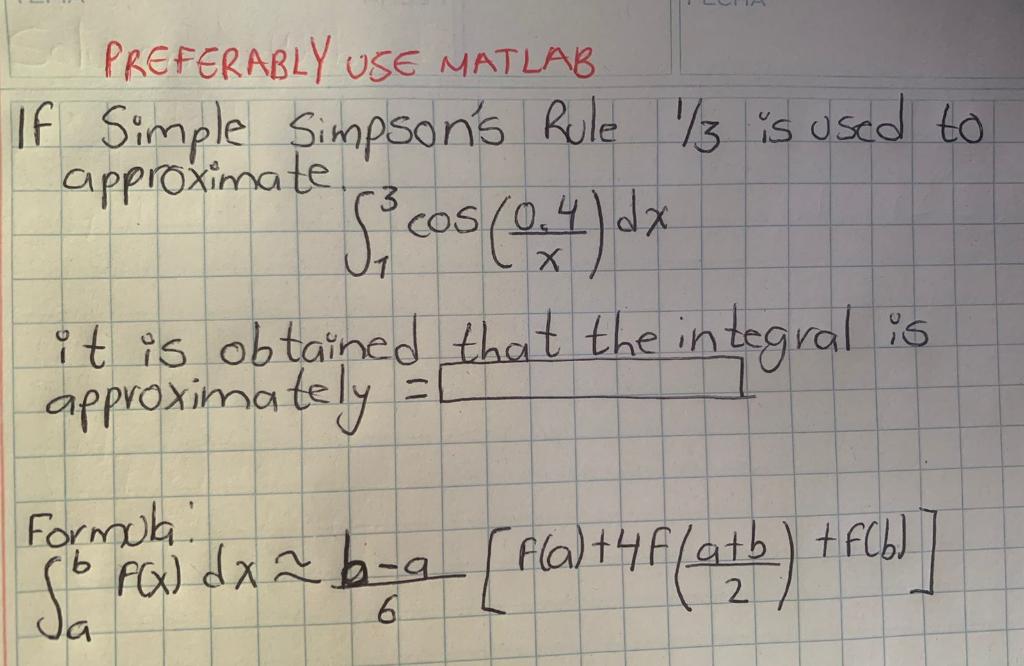 PREFERABLY USE MATLAB
If Simple Simpson's Rule 1/3 is used to
approximate.
∫₁³ cos(0.4/x) dx
it is obtained that the integral is
approximately =
Formula:
∫ₐᵇ f(x) dx ≈ b-a/6 [f(a)+4f(a+b/2)+f(b)]